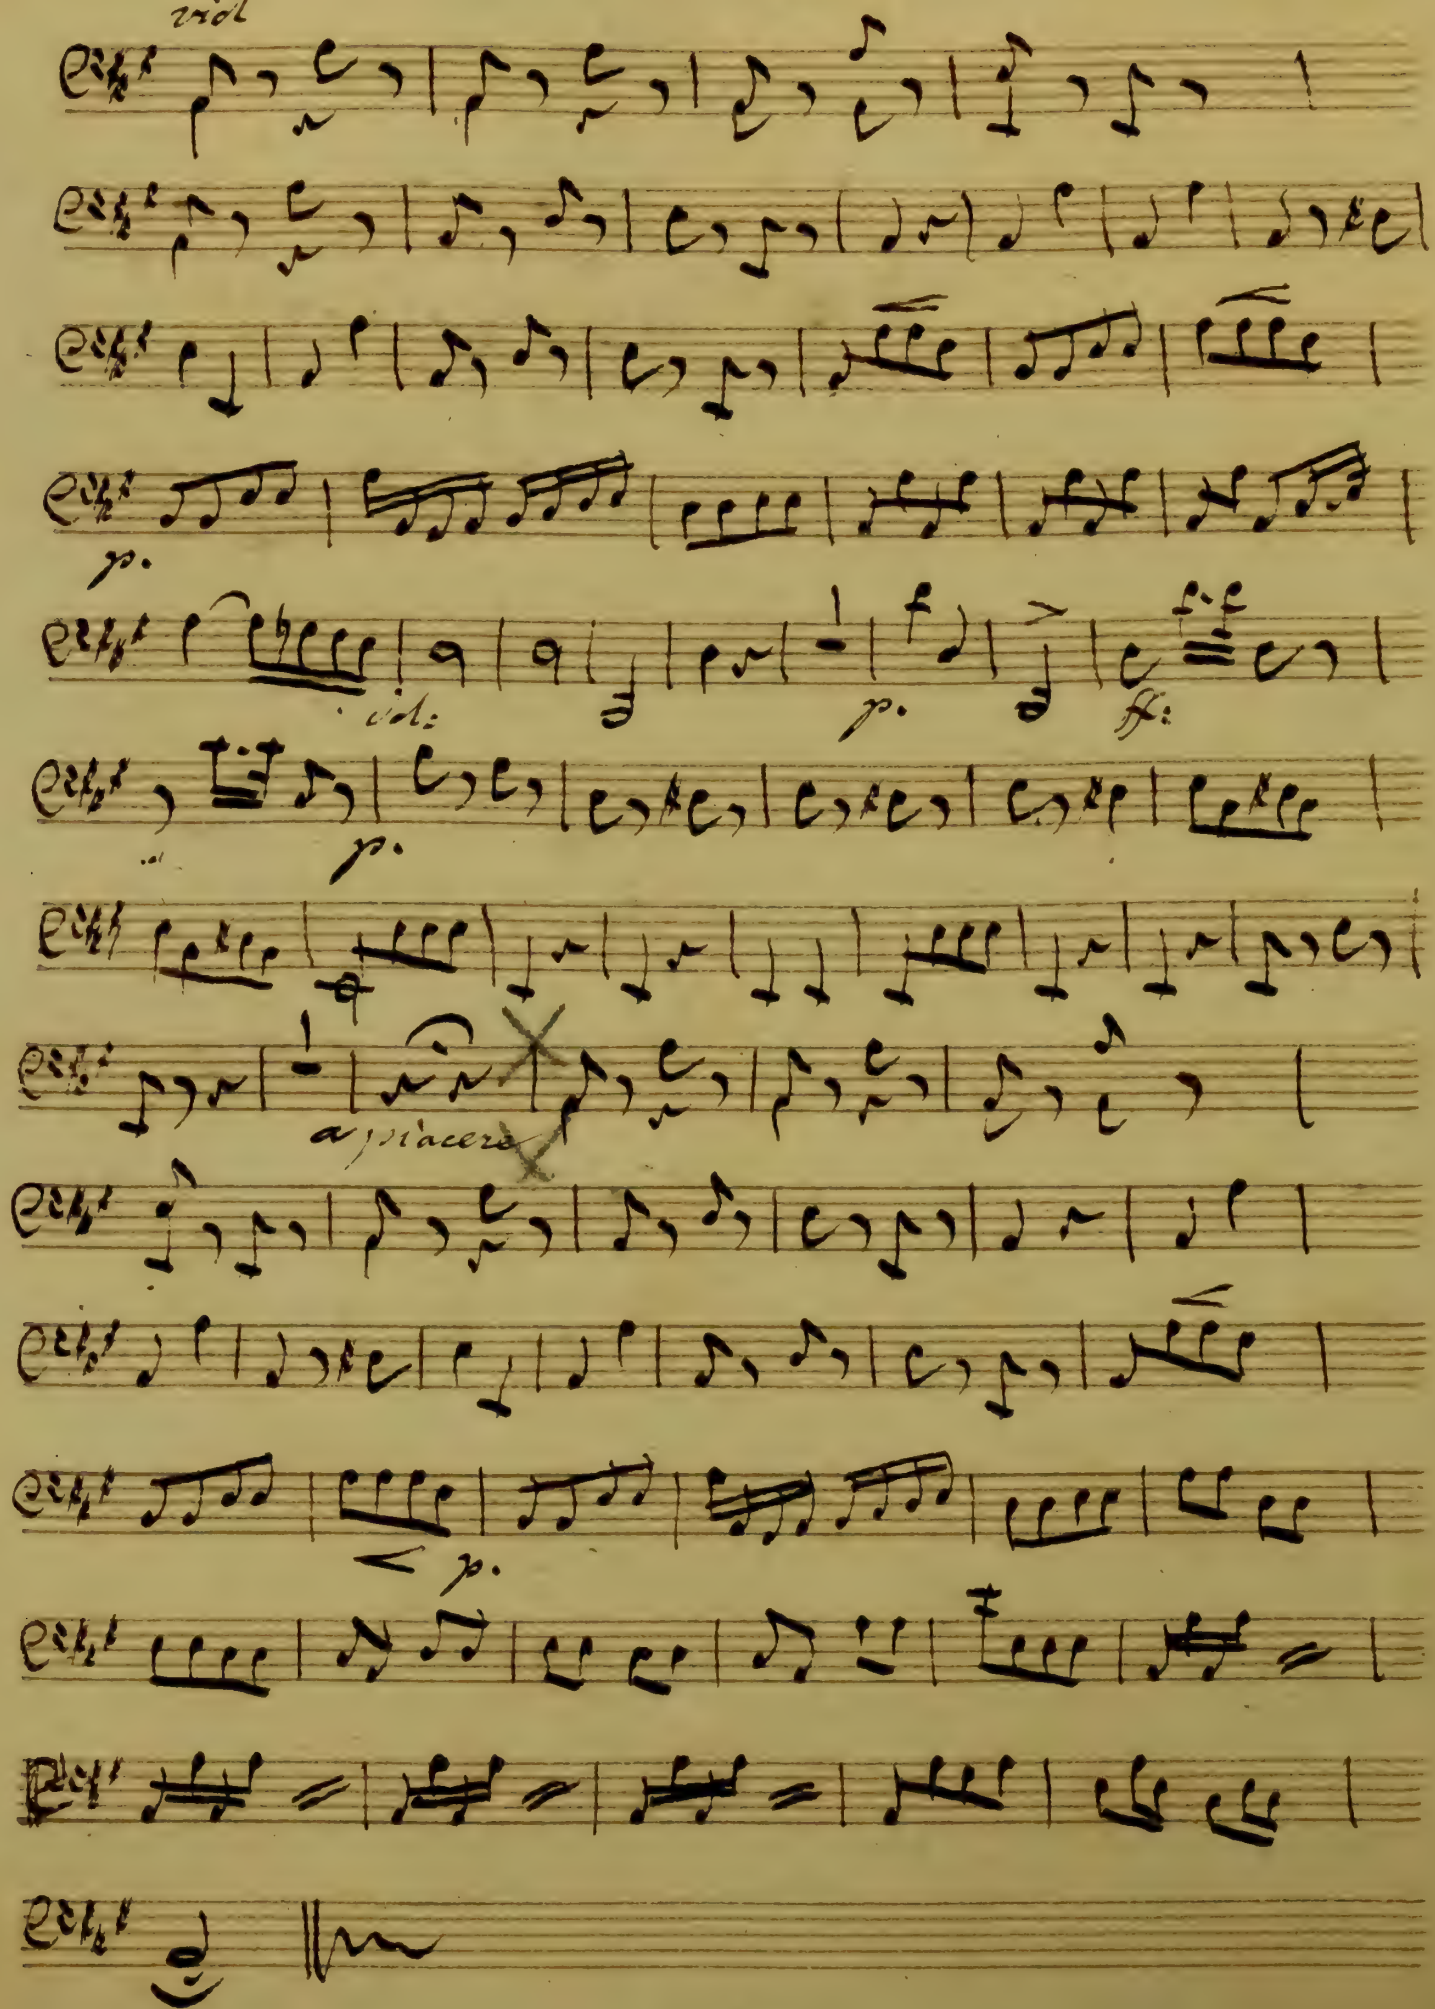 viol
p.
p.
ff:
p.
a piacere
p.